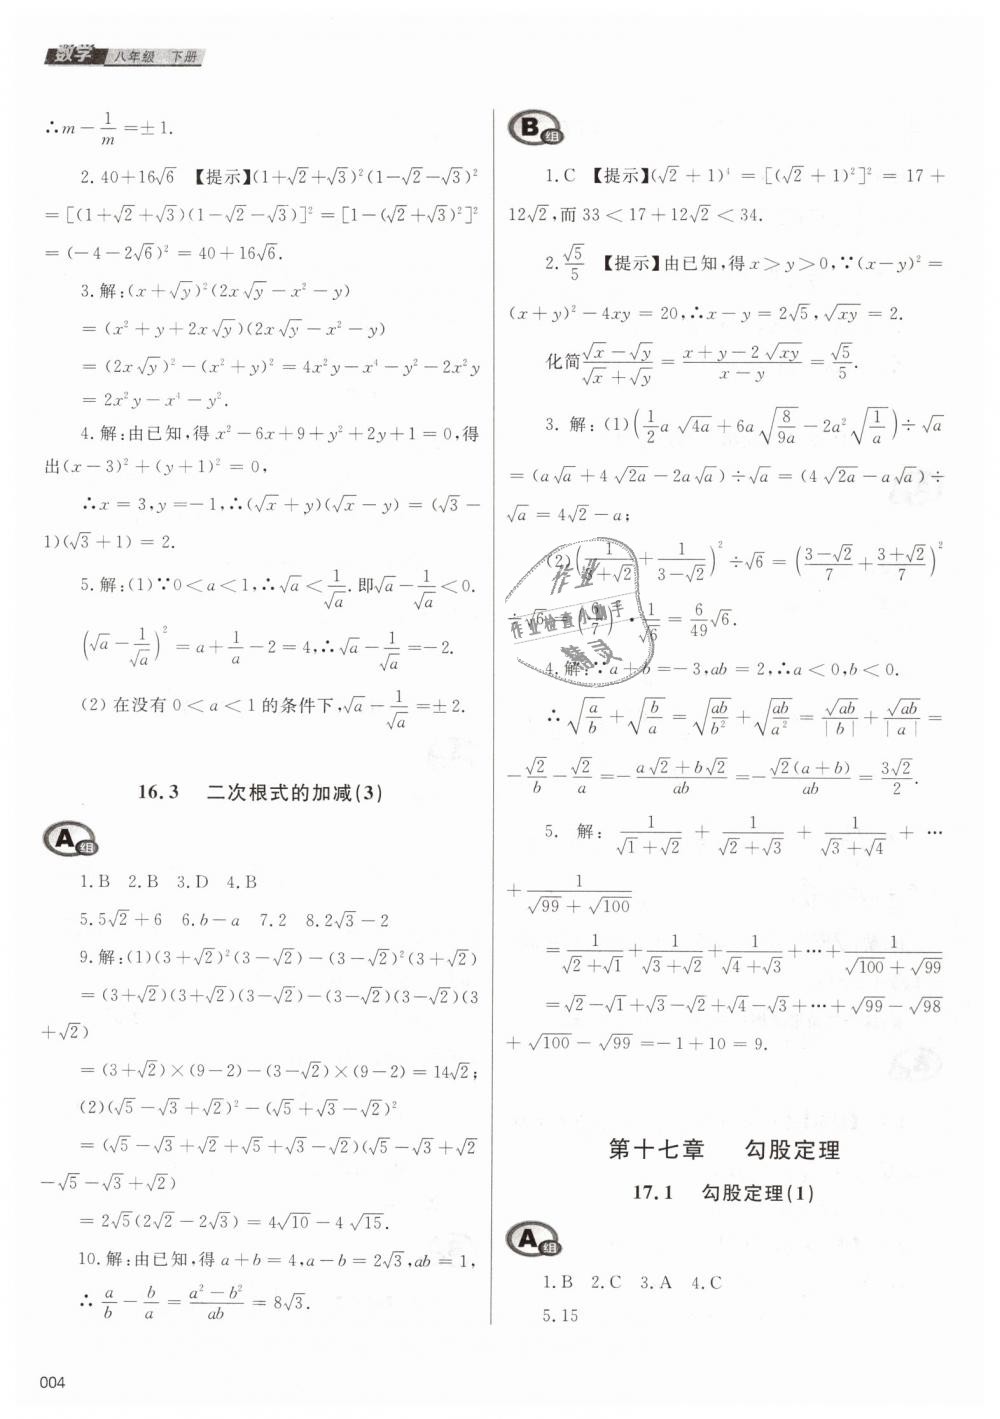 数学 八年级 下册
∴m－1/m＝±1.
2.40＋16√6 【提示】(1＋√2＋√3)²(1－√2－√3)²
＝[(1＋√2＋√3)(1－√2－√3)]²＝[1－(√2＋√3)²]²
＝(－4－2√6)²＝40＋16√6.
3.解:(x＋√y)²(2x√y－x²－y)
＝(x²＋y＋2x√y)(2x√y－x²－y)
＝(2x√y)²－(x²＋y)²＝4x²y－x⁴－y²－2x²y
＝2x²y－x⁴－y².
4.解:由已知,得x²－6x＋9＋y²＋2y＋1＝0,得
出(x－3)²＋(y＋1)²＝0,
∴x＝3,y＝－1,∴(√x＋y)(√x－y)＝(√3－
1)(√3＋1)＝2.
5.解:(1)∵0＜a＜1,∴√a＜1/√a.即√a－1/√a＜0.
(√a－1/√a)²＝a＋1/a－2＝4,∴√a－1/√a＝－2.
(2)在没有0＜a＜1的条件下,√a－1/√a＝±2.
16.3 二次根式的加减(3)
A组
1.B 2.B 3.D 4.B
5.5√2＋6 6.b－a 7.2 8.2√3－2
9.解:(1)(3＋√2)²(3－√2)－(3－√2)²(3＋√2)
＝(3＋√2)(3＋√2)(3－√2)－(3－√2)(3－√2)(3
＋√2)
＝(3＋√2)×(9－2)－(3－√2)×(9－2)＝14√2;
(2)(√5－√3＋√2)²－(√5＋√3－√2)²
＝(√5－√3＋√2＋√5＋√3－√2)(√5－√3＋√2
－√5－√3＋√2)
＝2√5(2√2－2√3)＝4√10－4√15.
10.解:由已知,得a＋b＝4,a－b＝2√3,ab＝1,
∴a/b－b/a＝(a²－b²)/ab＝8√3.
004
B组
1.C 【提示】(√2＋1)⁴＝[(√2＋1)²]²＝17＋
12√2,而33＜17＋12√2＜34.
2.√5/5 【提示】由已知,得x＞y＞0,∵(x－y)²＝
(x＋y)²－4xy＝20,∴x－y＝2√5,√xy＝2.
化简(√x－√y)/(√x＋√y)＝(x＋y－2√xy)/(x－y)＝√5/5.
3.解:(1)(1/2 a√4a＋6a√(8/9a)－2a²√(1/a))÷√a
＝(a√a＋4√2a－2a√a)÷√a＝(4√2a－a√a)÷
√a＝4√2－a;
(2)(1/(3＋√2)＋1/(3－√2))²÷√6＝((3－√2)/7＋(3＋√2)/7)²
÷√6＝(6/7)²·1/√6＝6/49 √6.
4.解:∵a＋b＝－3,ab＝2,∴a＜0,b＜0.
∴√(a/b)＋√(b/a)＝√(ab/b²)＋√(ab/a²)＝√ab/|b|＋√ab/|a|＝
－√2/b－√2/a＝－(a√2＋b√2)/ab＝－√2(a＋b)/ab＝3√2/2.
5.解:1/(√1＋√2)＋1/(√2＋√3)＋1/(√3＋√4)＋…
＋1/(√99＋√100)
＝1/(√2＋√1)＋1/(√3＋√2)＋1/(√4＋√3)＋…＋1/(√100＋√99)
＝√2－√1＋√3－√2＋√4－√3＋…＋√99－√98
＋√100－√99＝－1＋10＝9.
第十七章 勾股定理
17.1 勾股定理(1)
A组
1.B 2.C 3.A 4.C
5.15
作业
作业检查小助手
精灵